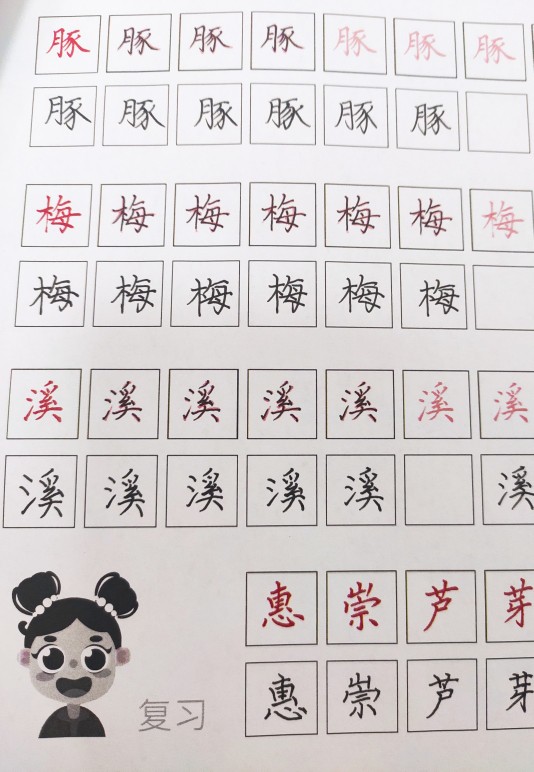 豚 豚 豚 豚 豚 豚 豚
豚 豚 豚 豚 豚 豚
梅 梅 梅 梅 梅 梅 梅
梅 梅 梅 梅 梅 梅
溪 溪 溪 溪 溪 溪 溪
溪 溪 溪 溪 溪 溪
惠 崇 芦 芽
复习 惠 崇 芦 芽